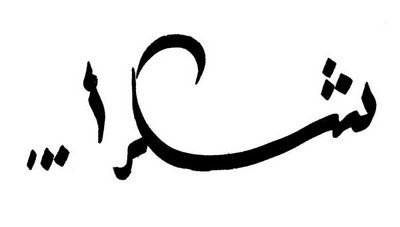 شكرا...